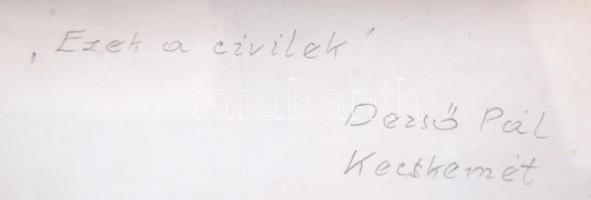 „Ezek a civilek"
darabanth
Dezső Pál
Kecskemét